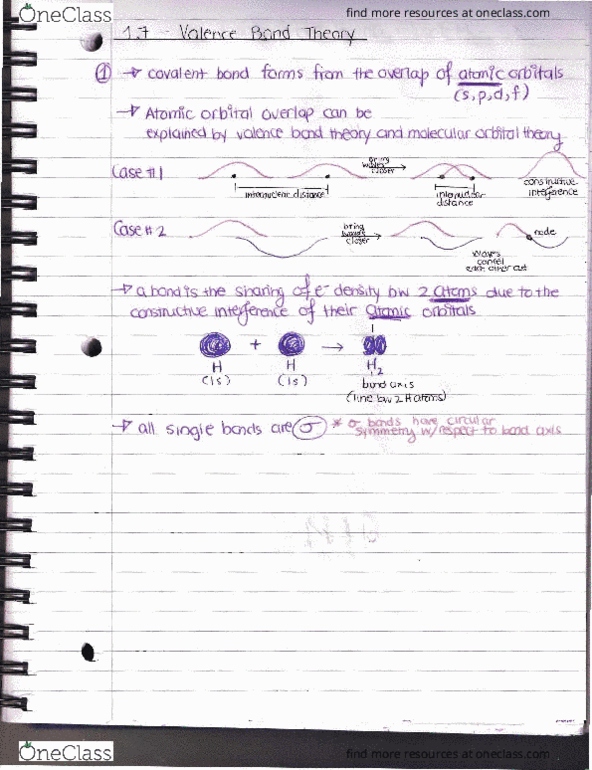 OneClass
find more resources at oneclass.com
1.7 - Valence Bond Theory
① → covalent bond forms from the overlap of atomic orbitals
(s, p, d, f)
→ Atomic orbital overlap can be
explained by valence bond theory and molecular orbital theory
Case #1
bring
waves
closer
internuclear distance
internuclear
distance
constructive
interference
Case #2
bring
waves
closer
node
waves
cancel
each other out
→ a bond is the sharing of e⁻ density bw 2 Atoms due to the
constructive interference of their atomic orbitals
+ →
H H H₂
(1s) (1s)
bond axis
(line bw 2 H atoms)
→ all single bonds are σ * σ bonds have circular
symmetry w/respect to bond axis
OneClass
find more resources at oneclass.com